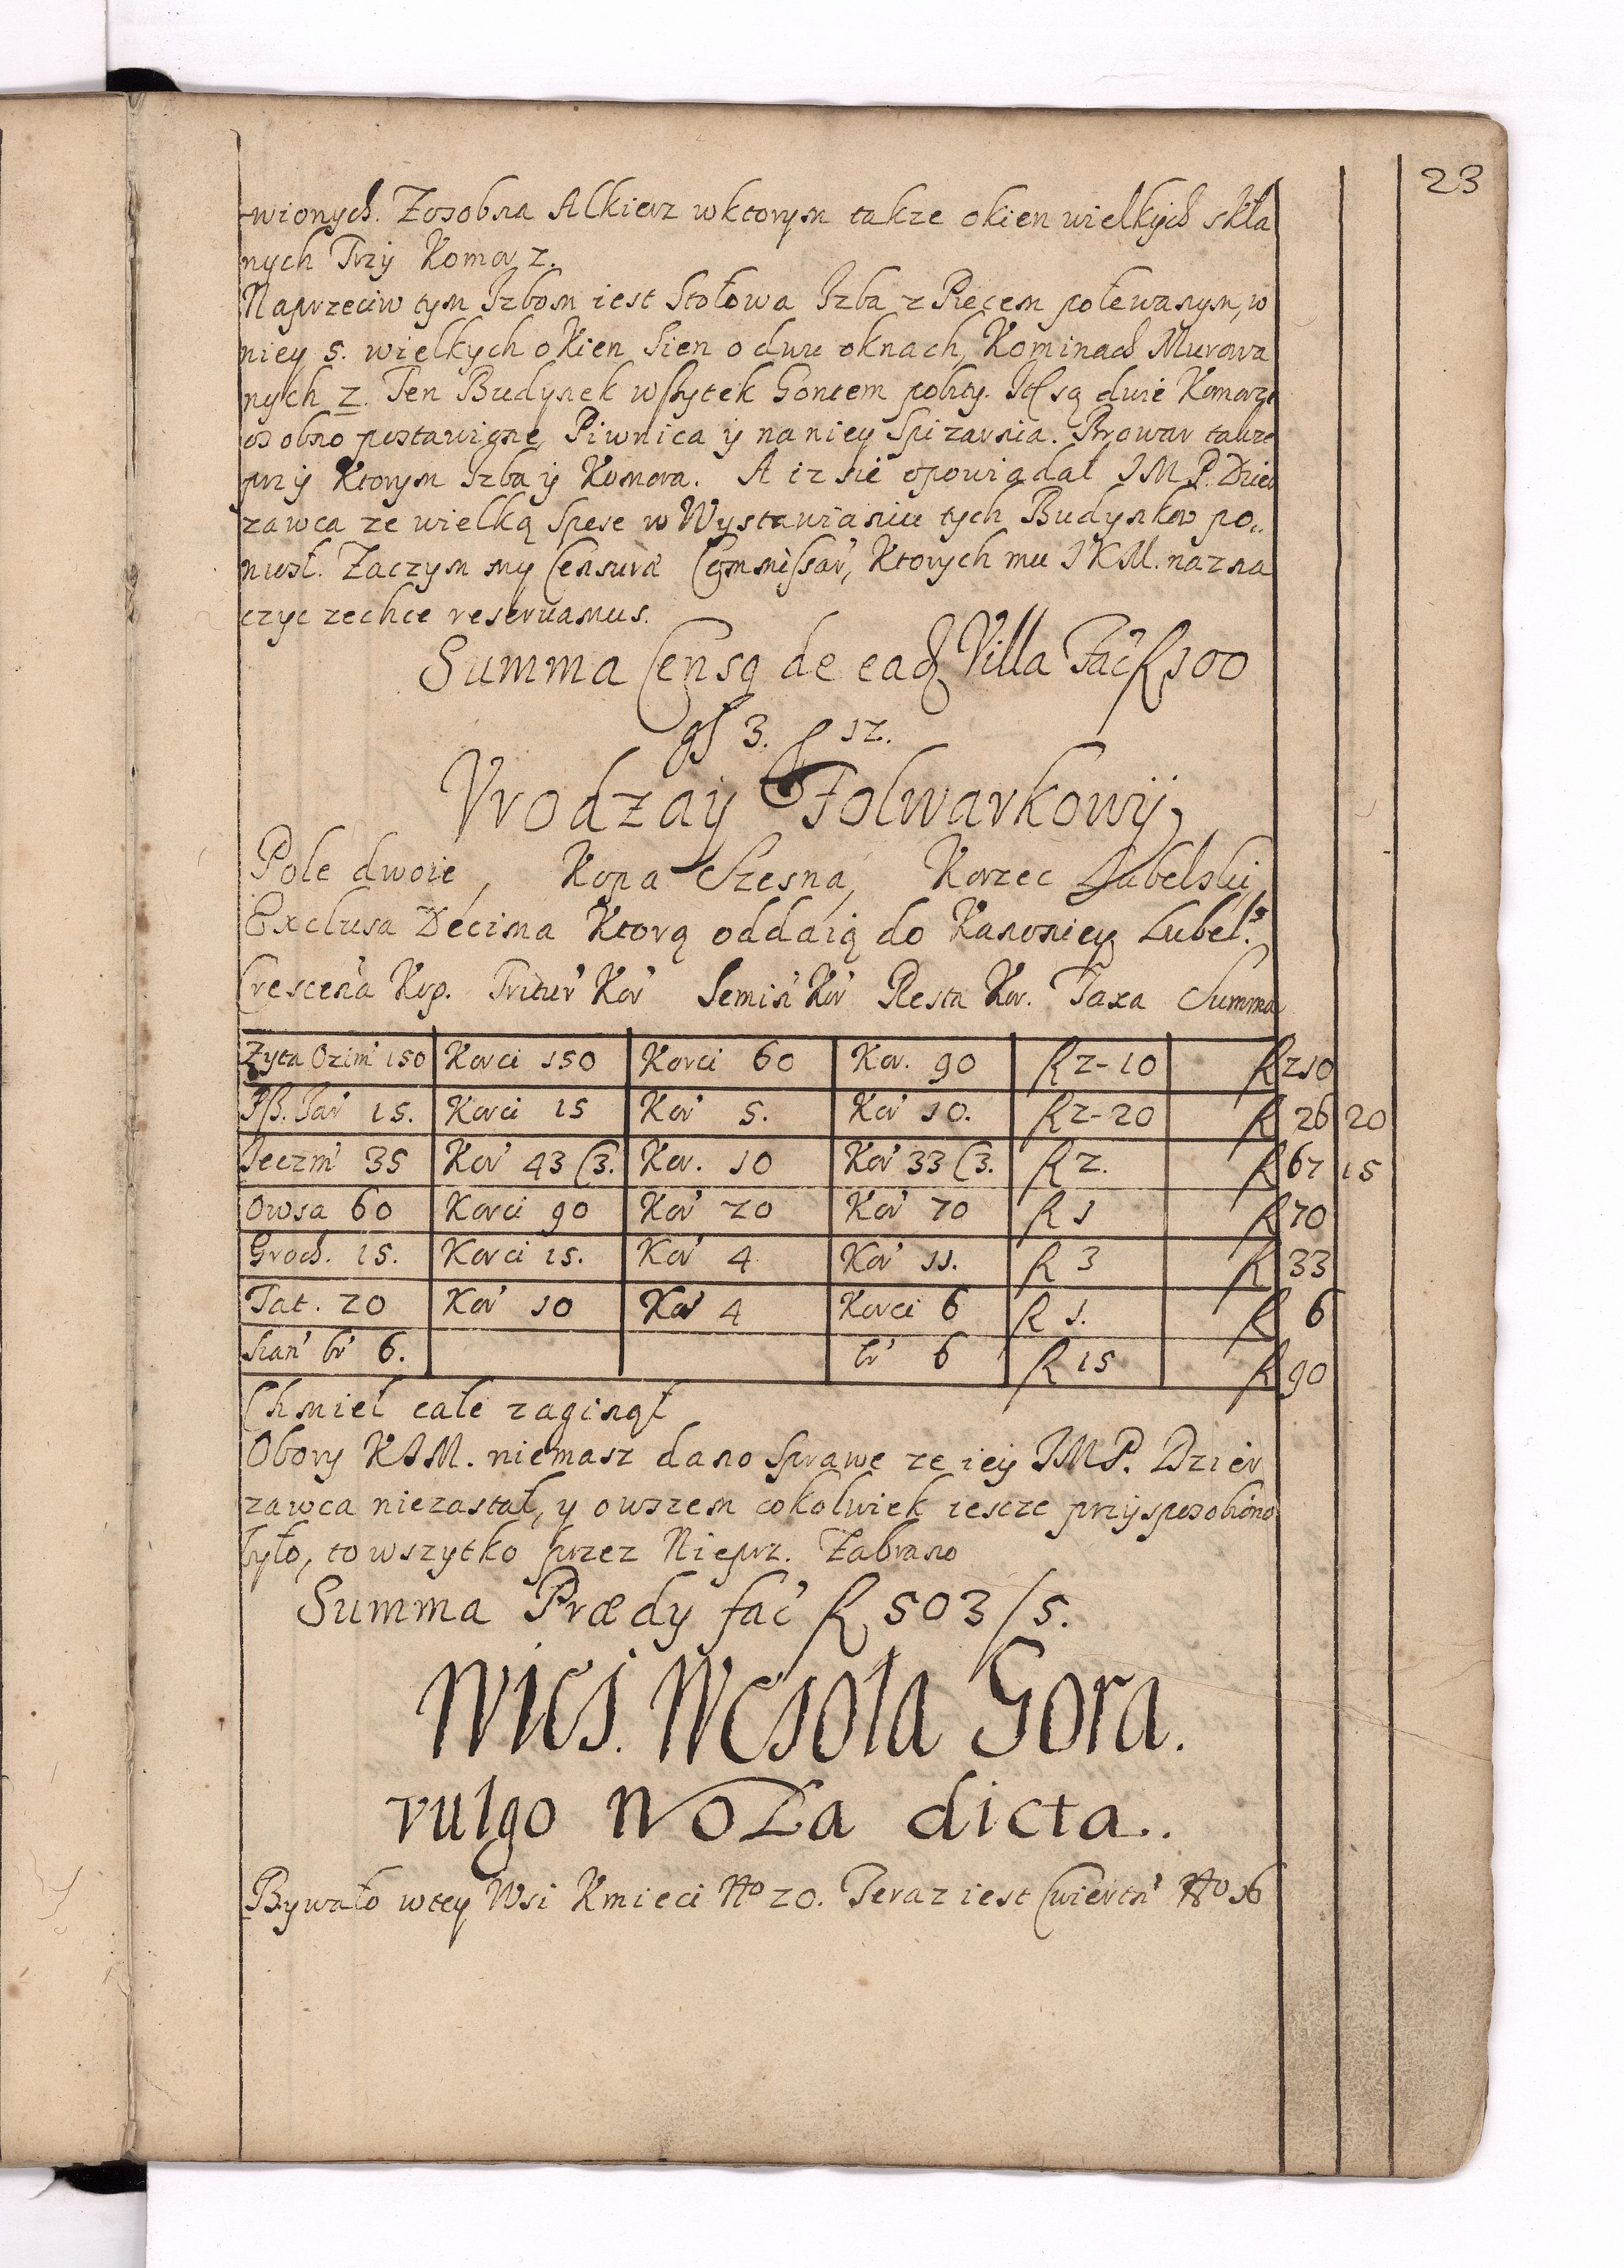 23
-wionych. Zosobna Alkierz wktorym takze okien wielkych skła
nych Trzÿ Komor 2.
Naprzeciw tym Izbom iest Stołowa Izba z Piecem polewanym, w
niey 5. wielkych okien Sien o dwu oknach, Kominach Murowa
nych 2. Ten Budynek wszytek Gontem pobity. It są dwie Komorze
osobno postawione, Piwnica ÿ na niey Spizarnia. Browar takze
przÿ Ktorym Izba ÿ Komora. A iz sie opowiadał IMP. Dzier
zawca ze wielką Spese w Wystawianiu tych Budynkow po„
niosł. Zaczym my Censuræ Commissar', Ktorych mu IKM. nazna
czyc zechce reseruamus.
Summa Censq de ead Villa Fac' fl 100
gs 3. d 12.
Vrodzaÿ Folwarkowÿ,
Pole dwoie, Kopa Czesna, Korzec Lubelski,
Exclusa Decima Ktorą oddaią do Kanoniey Lubel.
Crescen'a Kop. Tritur' Kor' Semin' Kor' Resta Kor. Taxa Summa
Zyta Ozim' 150 Korci 150 Korci 60 Kor. 90 fl 2-10 fl 210
Psz. Jar' 15. Korci 15 Kor' 5. Kor' 10. fl 2-20 fl 26 20
Jeczm' 35 Kor' 43 C3. Kor. 10 Kor' 33 C3. fl 2. fl 67 15
Owsa 60 Korci 90 Kor' 20 Kor' 70 fl 1 fl 70
Groch. 15. Korci 15. Kor' 4 Kor' 11. fl 3 fl 33
Tat. 20 Kor' 10 Kor' 4 Korci 6 fl 1. fl 6
Sian' br' 6. br' 6 fl 15 fl 90
Chmiel cale zaginął
Obory KIM. niemasz dano Sprawe ze iey IMP. Dzier
zawca niezastał, y owszem cokolwiek iescze przÿsposobiono
było, to wszytko przez Nieprz. Zabrano
Summa Prædy fac' fl 503/5.
Wies. Wesoła Gora.
vulgo WOLa dicta..
Bywało wtey Wsi Kmieci No 20. Teraz iest Cwiertn' No 16